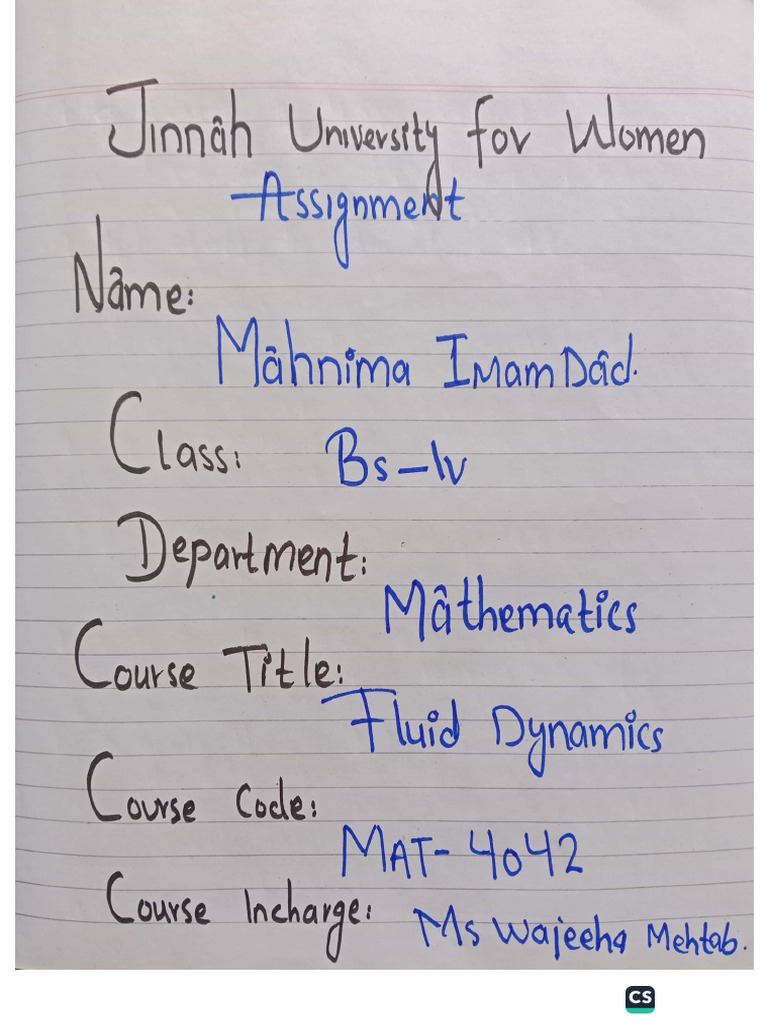 Jinnâh University for Women
Assignment
Nâme:
Mâhnima ImamDâd.
Class: Bs-Iv
Department:
Mâthematics
Course Title:
Fluid Dynamics
Course Code:
MAT-4042
Course Incharge: Ms Wajeeha Mehtab.
CS